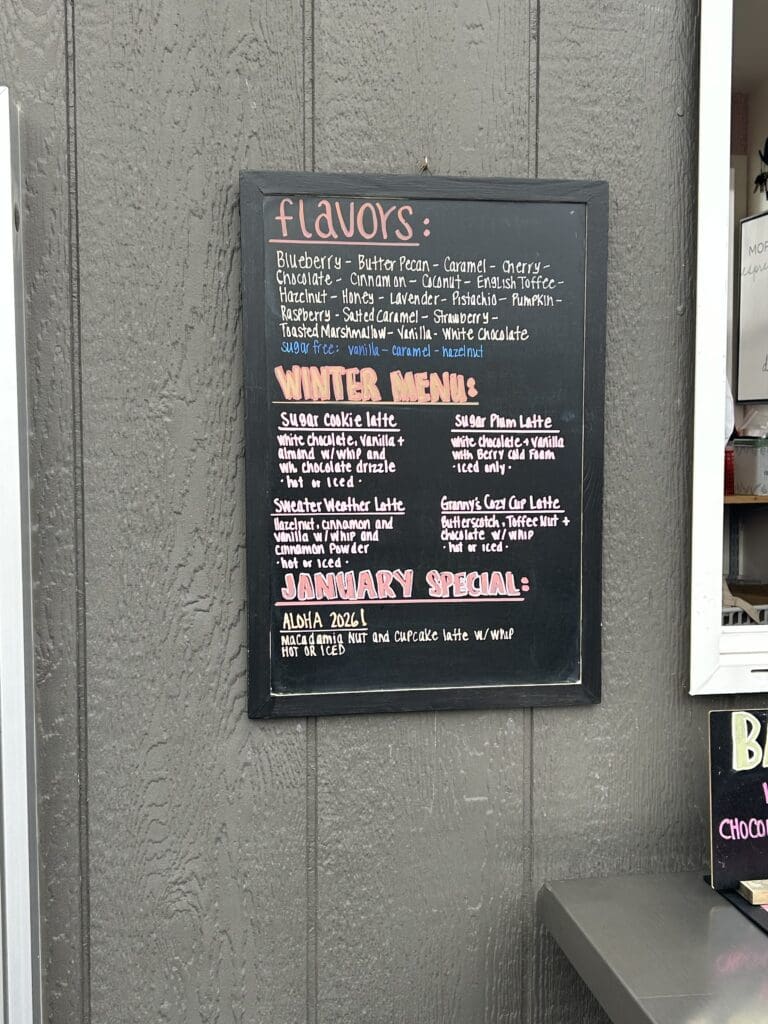 flavors:
Blueberry - Butter Pecan - Caramel - Cherry -
Chocolate - Cinnamon - Coconut - English Toffee -
Hazelnut - Honey - Lavender - Pistachio - Pumpkin -
Raspberry - Salted Caramel - Strawberry -
Toasted Marshmallow - Vanilla - White Chocolate
sugar free: vanilla - caramel - hazelnut
WINTER MENU:
Sugar Cookie Latte
white chocolate, vanilla +
almond w/ whip and
wh. chocolate drizzle
· hot or iced ·
Sugar Plum Latte
white chocolate + vanilla
with Berry Cold Foam
· iced only ·
Sweater Weather Latte
Hazelnut, cinnamon and
vanilla w/ whip and
cinnamon powder
· hot or iced ·
Granny's Cozy Cup Latte
Butterscotch, Toffee Nut +
chocolate w/ whip
· hot or iced ·
JANUARY SPECIAL:
ALOHA 2026!
Macadamia NUT and cupcake latte w/ whip
HOT OR ICED
MOR
B
CHOCO